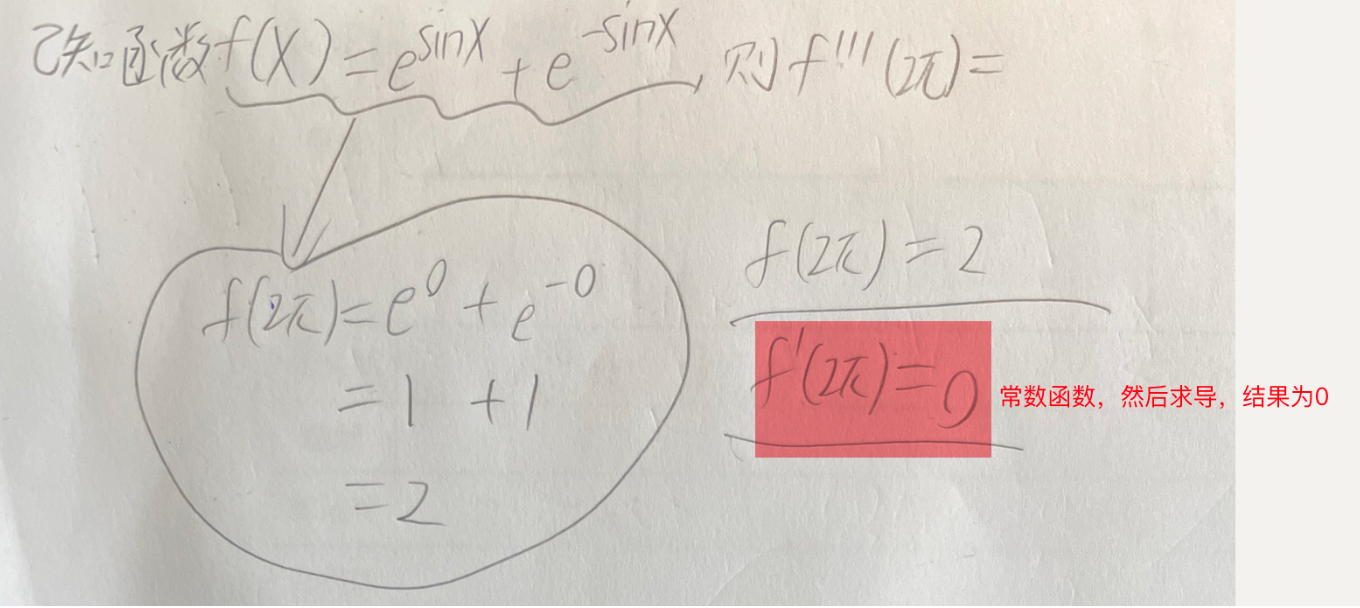 已知函数f(x)=e^sinx+e^-sinx,则f'''(2π)=
f(2π)=e^0+e^-0
=1+1
=2
f(2π)=2
f'(2π)=0
常数函数，然后求导，结果为0